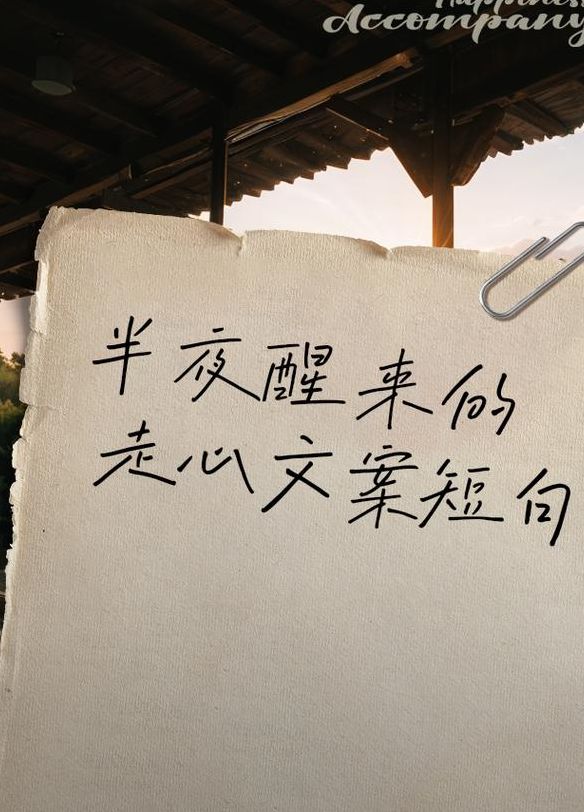 Happiness
Accompany
半夜醒来的
走心文案短句